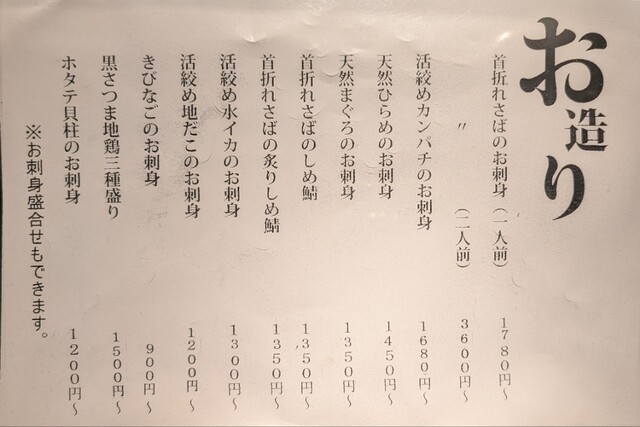 お造り
首折れさばのお刺身（一人前） 1780円～
〃 （二人前） 3600円～
活絞めカンパチのお刺身 1680円～
天然ひらめのお刺身 1450円～
天然まぐろのお刺身 1350円～
首折れさばのしめ鯖 1350円～
首折れさばの炙りしめ鯖 1350円～
活絞め水イカのお刺身 1300円～
活絞め地だこのお刺身 1200円～
きびなごのお刺身 900円～
黒さつま地鶏三種盛り 1500円～
ホタテ貝柱のお刺身 1200円～
※お刺身盛合せもできます。